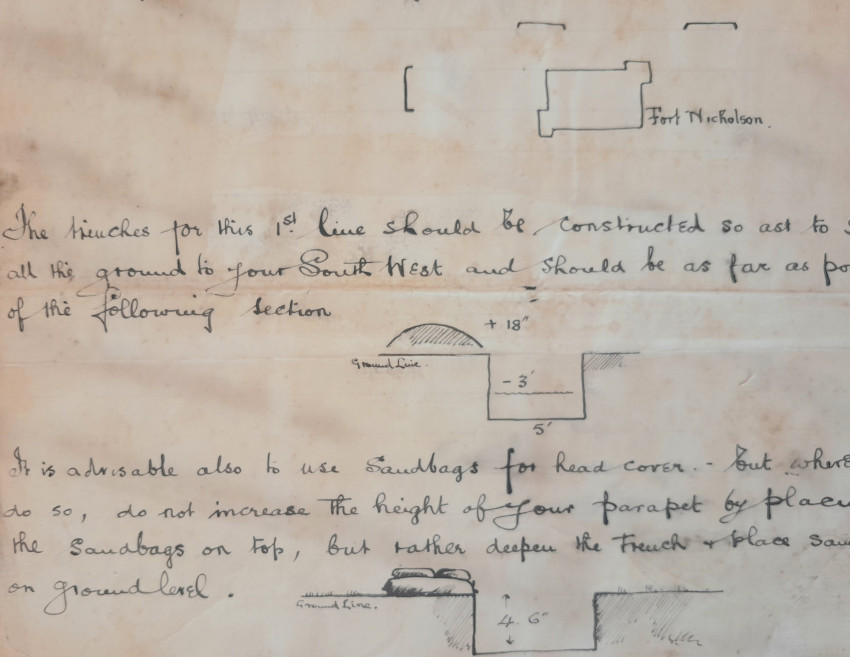 Fort Nicholson.
The trenches for this 1st line should be constructed so ast to
all the ground to your South West and should be as far as
of the following section
+ 18"
Ground Line.
- 3'
5'
It is advisable also to use Sandbags for head cover. - But where
do so, do not increase the height of your parapet by
the Sandbags on top, but rather deepen the Trench + place
on ground level.
Ground Line.
4. 6"